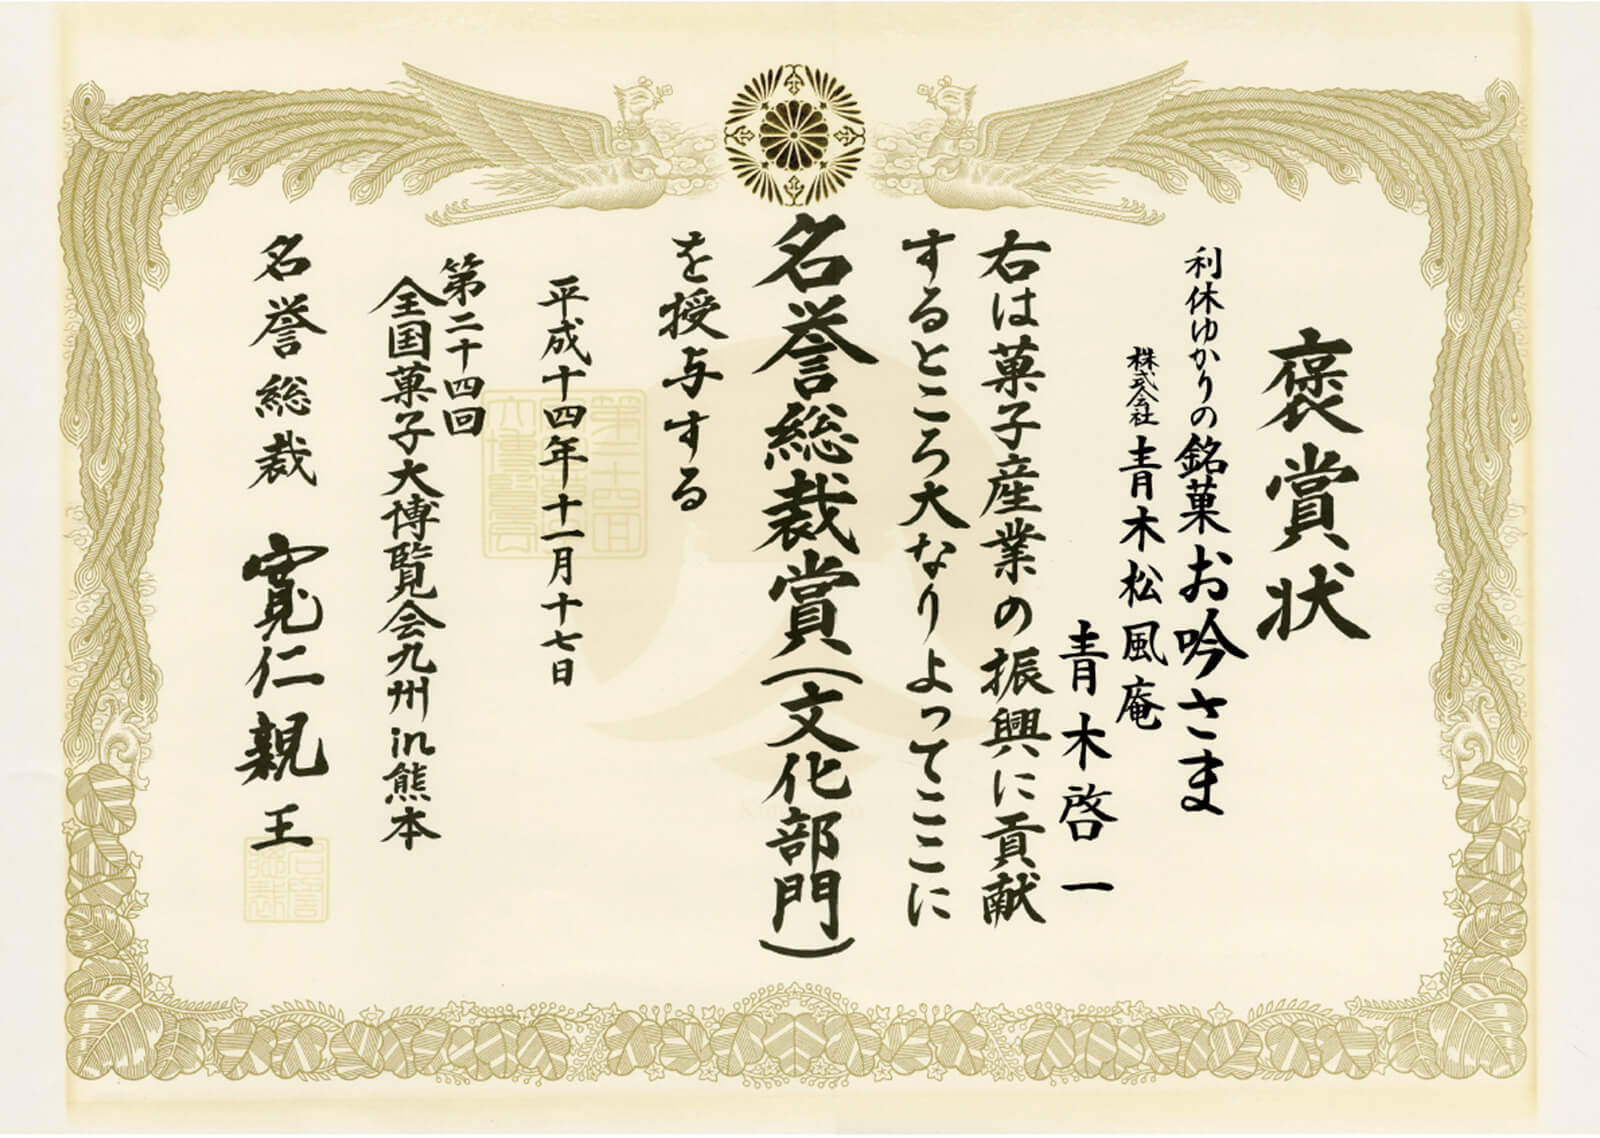 褒賞状
利休ゆかりの銘菓お吟さま
株式会社青木松風庵
青木啓一
右は菓子産業の振興に貢献
するところ大なりよってここに
名誉総裁賞(文化部門)
を授与する
平成十四年十一月十七日
第二十四回
全国菓子大博覧会九州in熊本
名誉総裁 寬仁親王